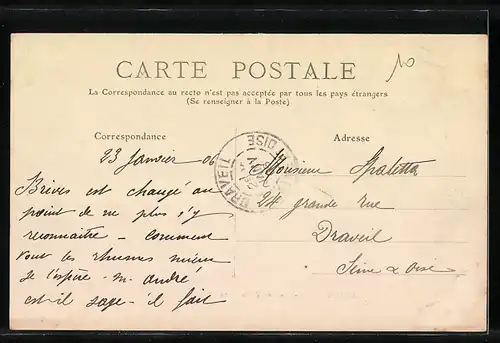 10
CARTE POSTALE
La Correspondance au recto n'est pas acceptée par tous les pays étrangers
(Se renseigner à la Poste)
Correspondance
Adresse
23 Janvier 06
Brives est changé au
point de ne plus s'y
reconnaitre - comment
vont les rhumes mieux
je l'espère - m. andré
est-il sage - il fait
DRAVEIL
OISE
Monsieur Spaletta
24 grande rue
Draveil
Seine & Oise